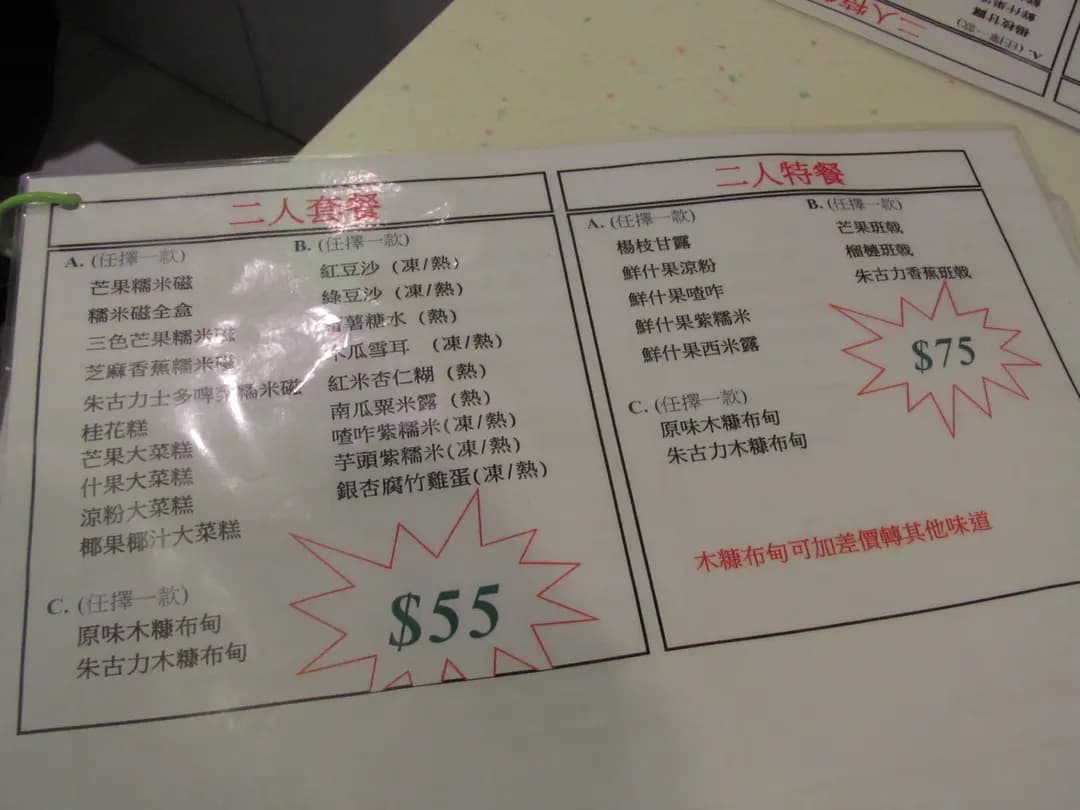 二人套餐
A. (任擇一款)
芒果糯米磁
糯米磁全盒
三色芒果糯米磁
芝麻香蕉糯米磁
朱古力士多啤梨糯米磁
桂花糕
芒果大菜糕
什果大菜糕
涼粉大菜糕
椰果椰汁大菜糕
B. (任擇一款)
紅豆沙 (凍/熱)
綠豆沙 (凍/熱)
薯糖水 (熱)
木瓜雪耳 (凍/熱)
紅米杏仁糊 (熱)
南瓜粟米露 (熱)
喳咋紫糯米(凍/熱)
芋頭紫糯米(凍/熱)
銀杏腐竹雞蛋(凍/熱)
C. (任擇一款)
原味木糠布甸
朱古力木糠布甸
$55
二人特餐
A. (任擇一款)
楊枝甘露
鮮什果涼粉
鮮什果喳咋
鮮什果紫糯米
鮮什果西米露
B. (任擇一款)
芒果班戟
榴槤班戟
朱古力香蕉班戟
$75
C. (任擇一款)
原味木糠布甸
朱古力木糠布甸
木糠布甸可加差價轉其他味道
二人特
A. (任擇一款)
楊枝甘露
鮮什果